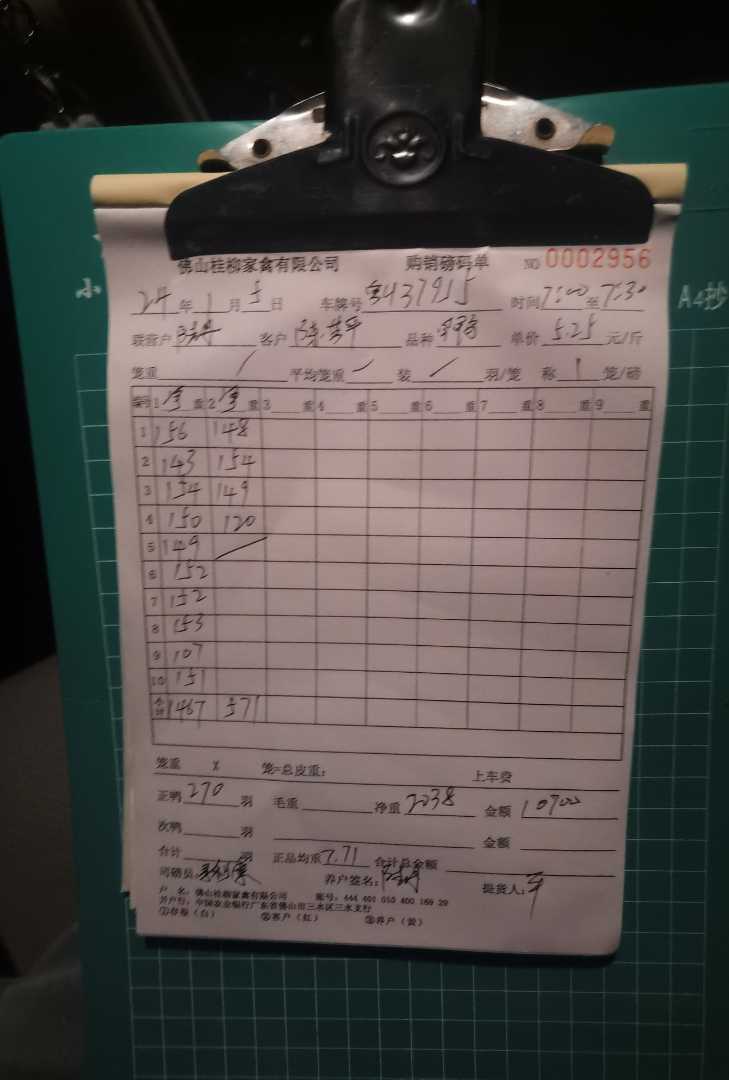 佛山桂柳家禽有限公司 购销磅码单 NO 0002956
小 A4抄
24年1月5日 车牌号 437915 时间7:00至7:30
联营户 客户 品种 单价5.25元/斤
笼重 / 平均笼重 / 装 / 羽/笼 称 1 笼/磅
编号 1 净 重 2 净 重 3 重 4 重 5 重 6 重 7 重 8 重 9 重
1 156 148
2 143 154
3 154 149
4 150 120
5 149 /
6 152
7 152
8 153
9 107
10 151
小计 1467 571
笼重 X 笼=总皮重： 上车费
正鸭270羽 毛重 净重2038 金额10700
次鸭 羽 金额
合计 羽 正品均重7.71 合计总金额
司磅员： 养户签名： 提货人：平
户 名：佛山桂柳家禽有限公司 账号：444 401 010 400 169 29
开户行：中国农业银行广东省佛山市三水区三水支行
①存根（白） ②客户（红） ③养户（黄）